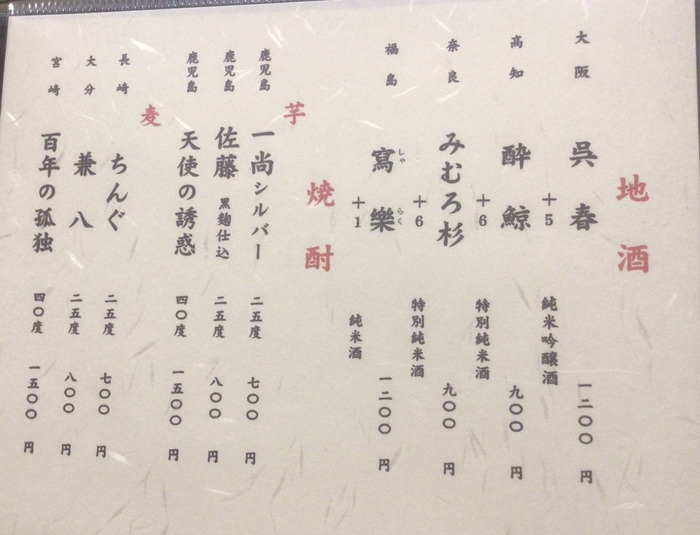 地酒
大阪 呉春 一二〇〇円
+5 純米吟醸酒
高知 酔鯨 九〇〇円
+6 特別純米酒
奈良 みむろ杉 九〇〇円
+6 特別純米酒
福島 寫樂 一二〇〇円
しゃ らく
+1 純米酒
焼酎
芋
鹿児島 一尚シルバー 二五度 七〇〇円
鹿児島 佐藤 黒麹仕込 二五度 八〇〇円
鹿児島 天使の誘惑 四〇度 一五〇〇円
麦
長崎 ちんぐ 二五度 七〇〇円
大分 兼八 二五度 八〇〇円
宮崎 百年の孤独 四〇度 一五〇〇円